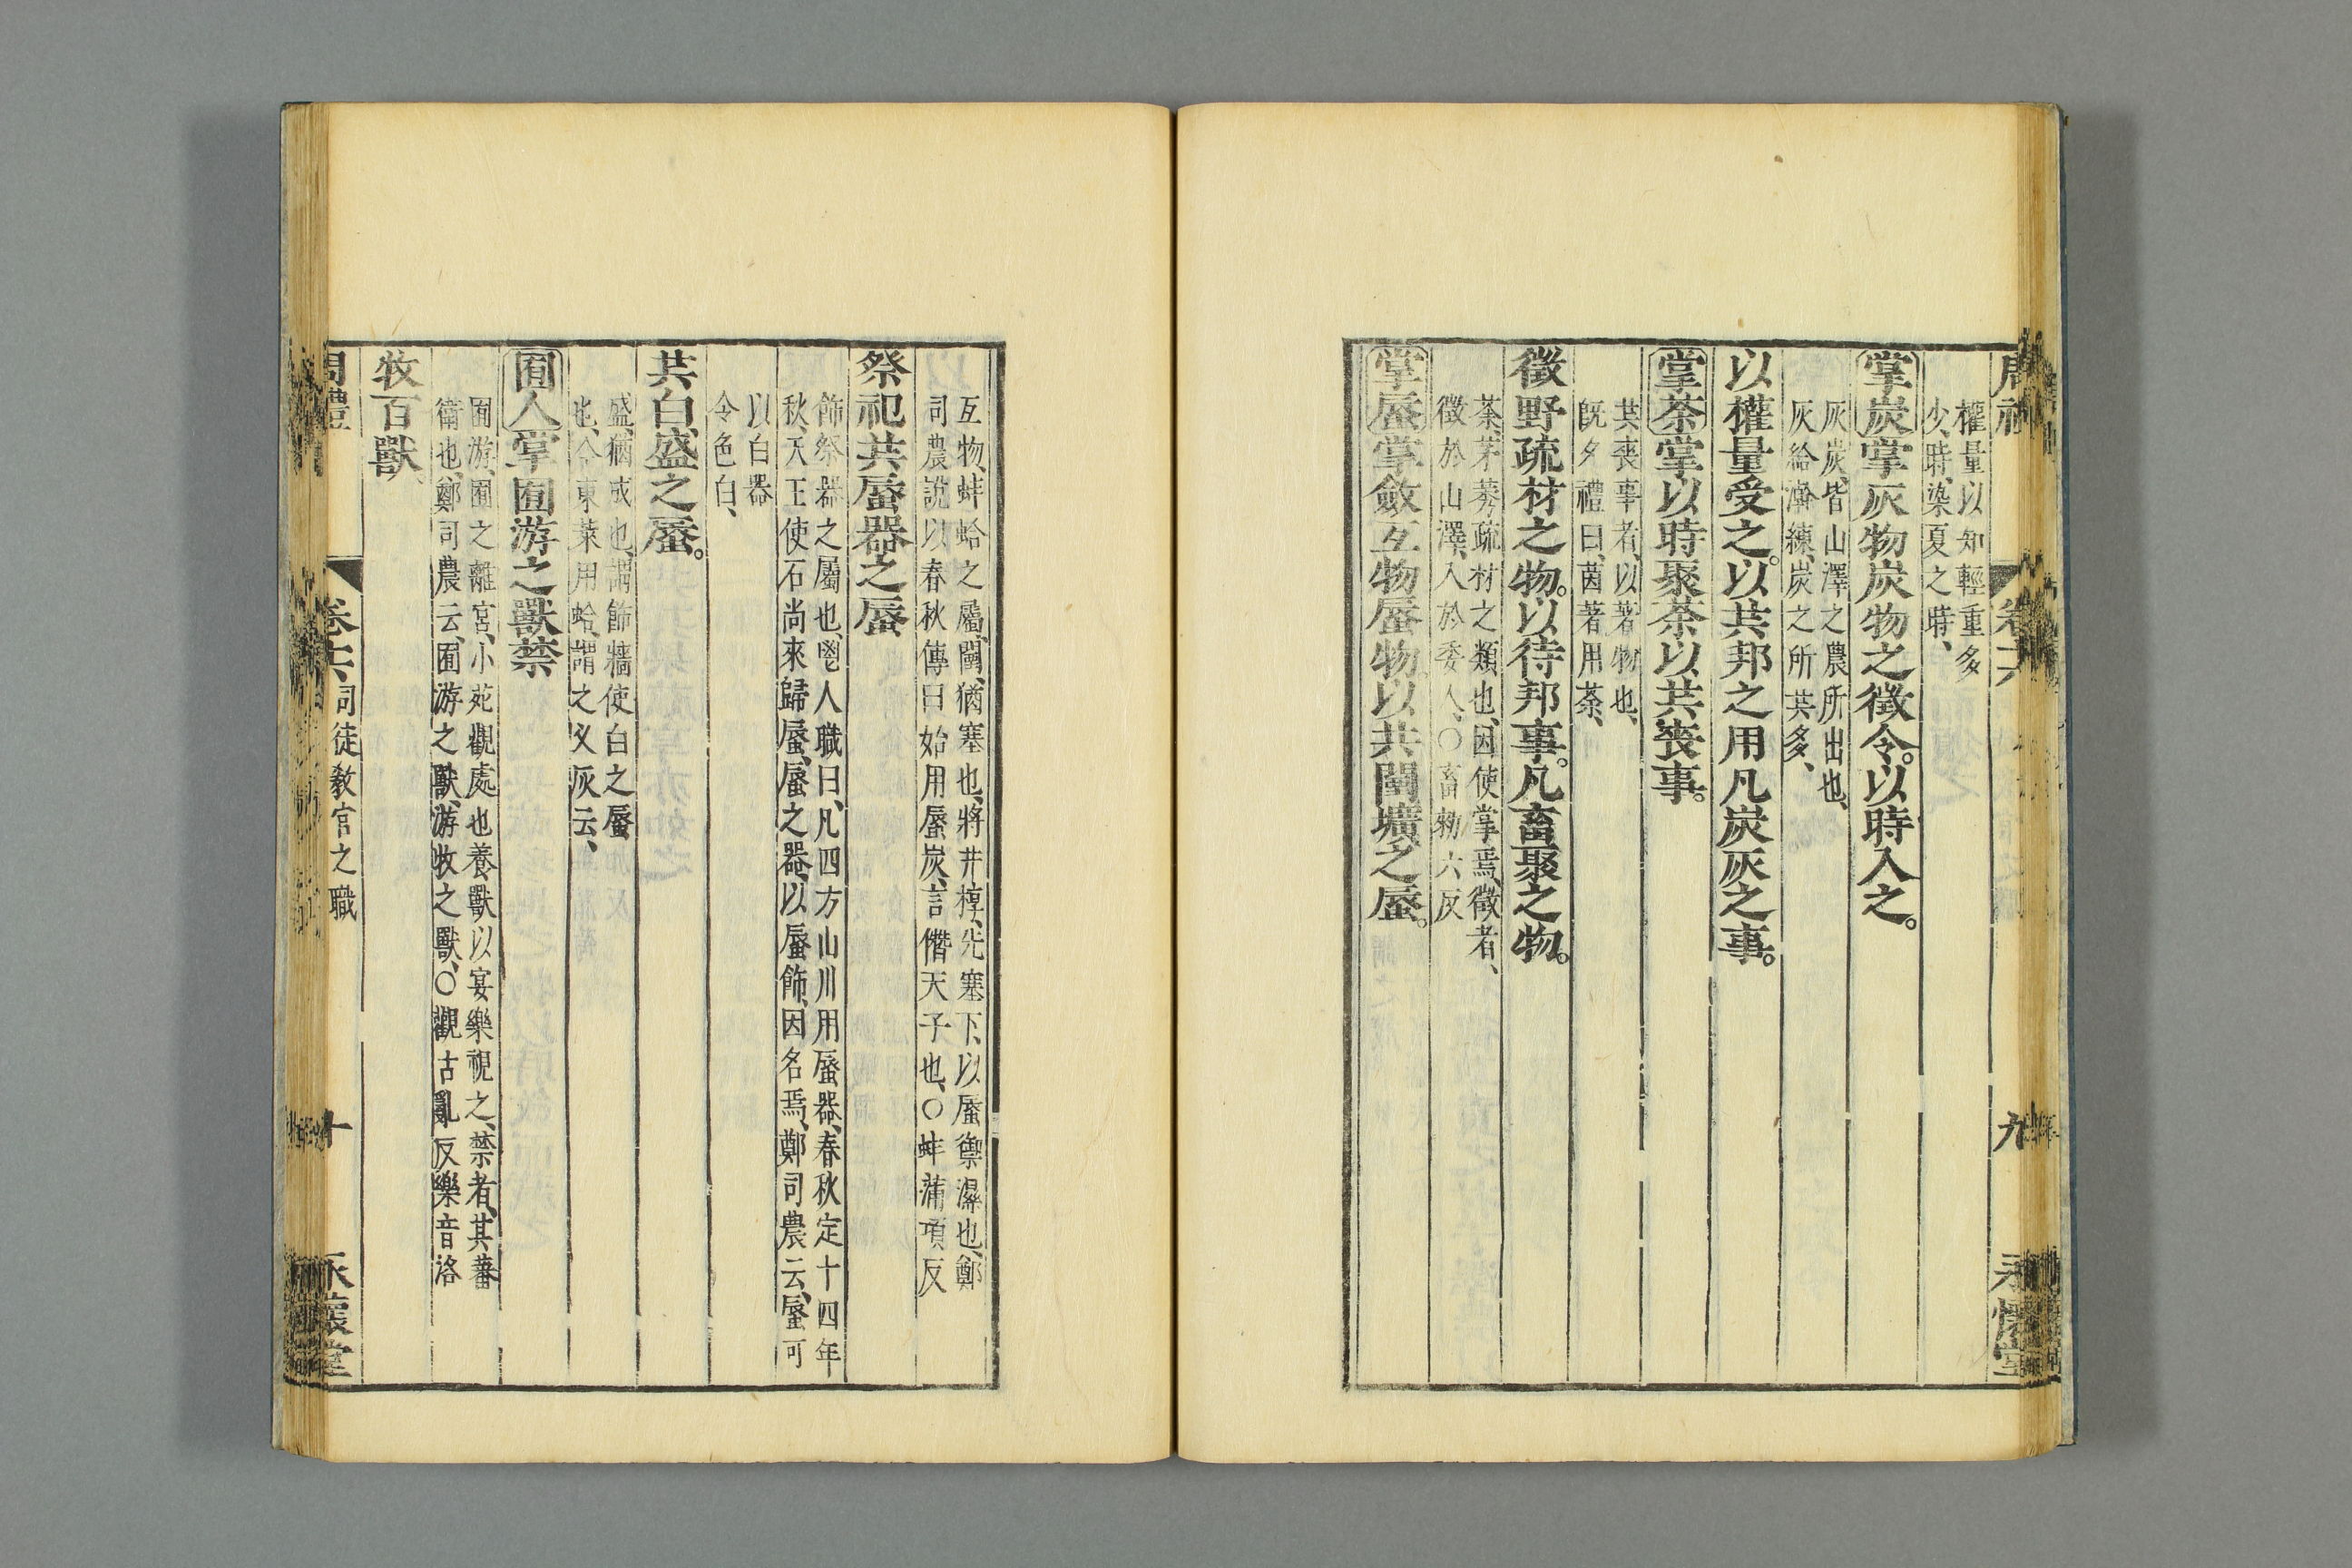 周禮
卷六
九
永懷堂
權量以知輕重多
少、時、染夏之時、
掌炭掌灰物炭物之徵令。以時入之。
灰炭、皆山澤之農所出也、
灰給澣練、炭之所共多、
以權量受之。以共邦之用凡炭灰之事。
掌荼掌以時聚荼以共喪事。
共喪事者、以著物也、
旣夕禮曰、茵著用荼、
徵野疏材之物。以待邦事。凡畜聚之物。
荼、茅莠疏材之類也、因使掌焉、徵者、
徵於山澤、入於委人、○畜勑六反
掌蜃掌斂互物蜃物。以共闉壙之蜃。
互物、蚌蛤之屬、闉、猶塞也、將井椁、先塞下、以蜃禦濕也、鄭
司農說以春秋傳曰始用蜃炭、言僭天子也、○蚌蒲項反
祭祀共蜃器之蜃
飾祭器之屬也、鬯人職曰、凡四方山川用蜃器、春秋定十四年
秋、天王使石尚來歸蜃、蜃之器、以蜃飾、因名焉、鄭司農云、蜃可
以白器
令色白、
共白盛之蜃。
盛、猶成也、謂飾牆使白之蜃
也、今東萊用蛤、謂之义灰云、
囿人掌囿游之獸禁
囿游、囿之離宮、小苑觀處也養獸以宴樂視之、禁者、其蕃
衞也、鄭司農云、囿游之獸、游牧之獸、○觀古亂反樂音洛
牧百獸、
周禮
卷六 司徒教官之職
十
永懷堂